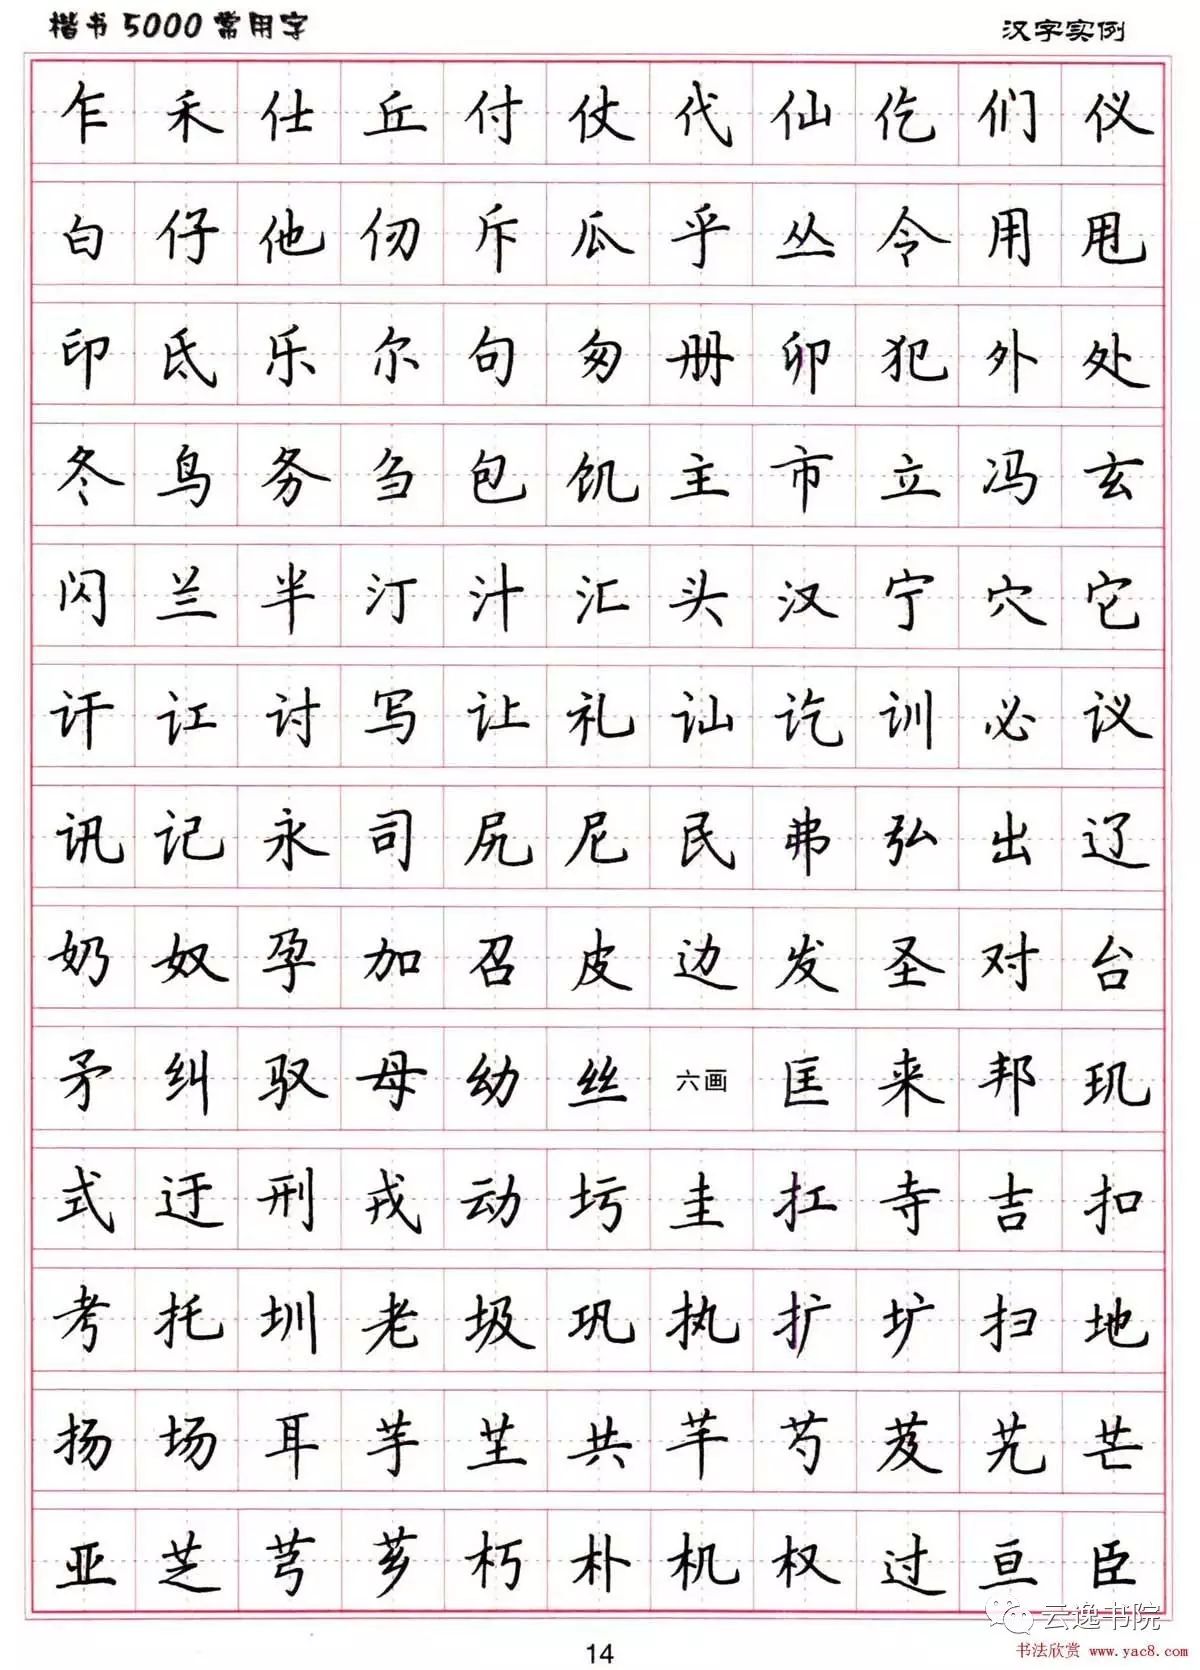 楷书5000常用字 汉字实例
乍 禾 仕 丘 付 仗 代 仙 仡 们 仪
白 仔 他 仞 斥 瓜 乎 丛 令 用 甩
印 氐 乐 尔 句 匆 册 卯 犯 外 处
冬 鸟 务 刍 包 饥 主 市 立 冯 玄
闪 兰 半 汀 汁 汇 头 汉 宁 穴 它
讦 讧 讨 写 让 礼 讪 讫 训 必 议
讯 记 永 司 尻 尼 民 弗 弘 出 辽
奶 奴 孕 加 召 皮 边 发 圣 对 台
矛 纠 驭 母 幼 丝 六画 匡 耒 邦 玑
式 迂 刑 戎 动 圬 圭 扛 寺 吉 扣
考 托 圳 老 圾 巩 执 扩 圹 扫 地
扬 场 耳 芋 芏 共 芊 芍 芨 艽 芒
亚 芝 芎 芗 朽 朴 机 权 过 亘 臣
云逸书院
书法欣赏 www.yac8.com
14